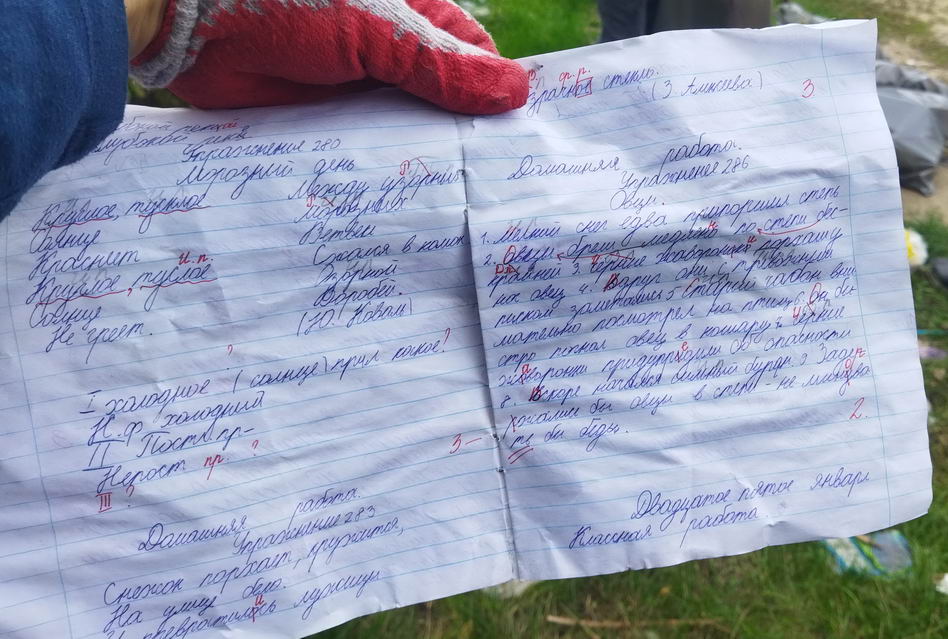 Упражнение 280
Морозный день
Круглое, тусклое
Солнце
Краснеет
и.п.
Круглое, туслое
Солнце
Не греет.
Между узорных
Морозных
Ветвей
Сжался в комок
Зоркой
Воробей.
(Ю. Коваль)
?
I холодное (солнце) прил какое?
Н.ф холодный
II Пост. пр-
Непост пр. ?
III ?
3-
Домашняя работа.
Упражнение 283
Снежок порхает, кружится,
На улице бело.
И превратились лужицы
ф. р.
зрачное стекло.
(З. Алексеева)
3
Домашняя работа.
Упражнение 286
Овцы.
1. Мелкий снег едва припорошил степь
2. Овцы брели медлено по степи бес-
крайней 3. Чёрние жаворонки
ник овец 4. Вдруг они с тревожным
писком заметались 5 Старый чабан вни
мательно посмотрел на птиц 6. Он бы
стро погнал овец в кошару 7 Чёрние
жаворонки придупрдили об опасности
8. Вскоре начался сильный буран. 9 Заде
ржались бы овцы в степи - не
ть бы беды.
2.
Двадцатое пятое январь
Классная работа.